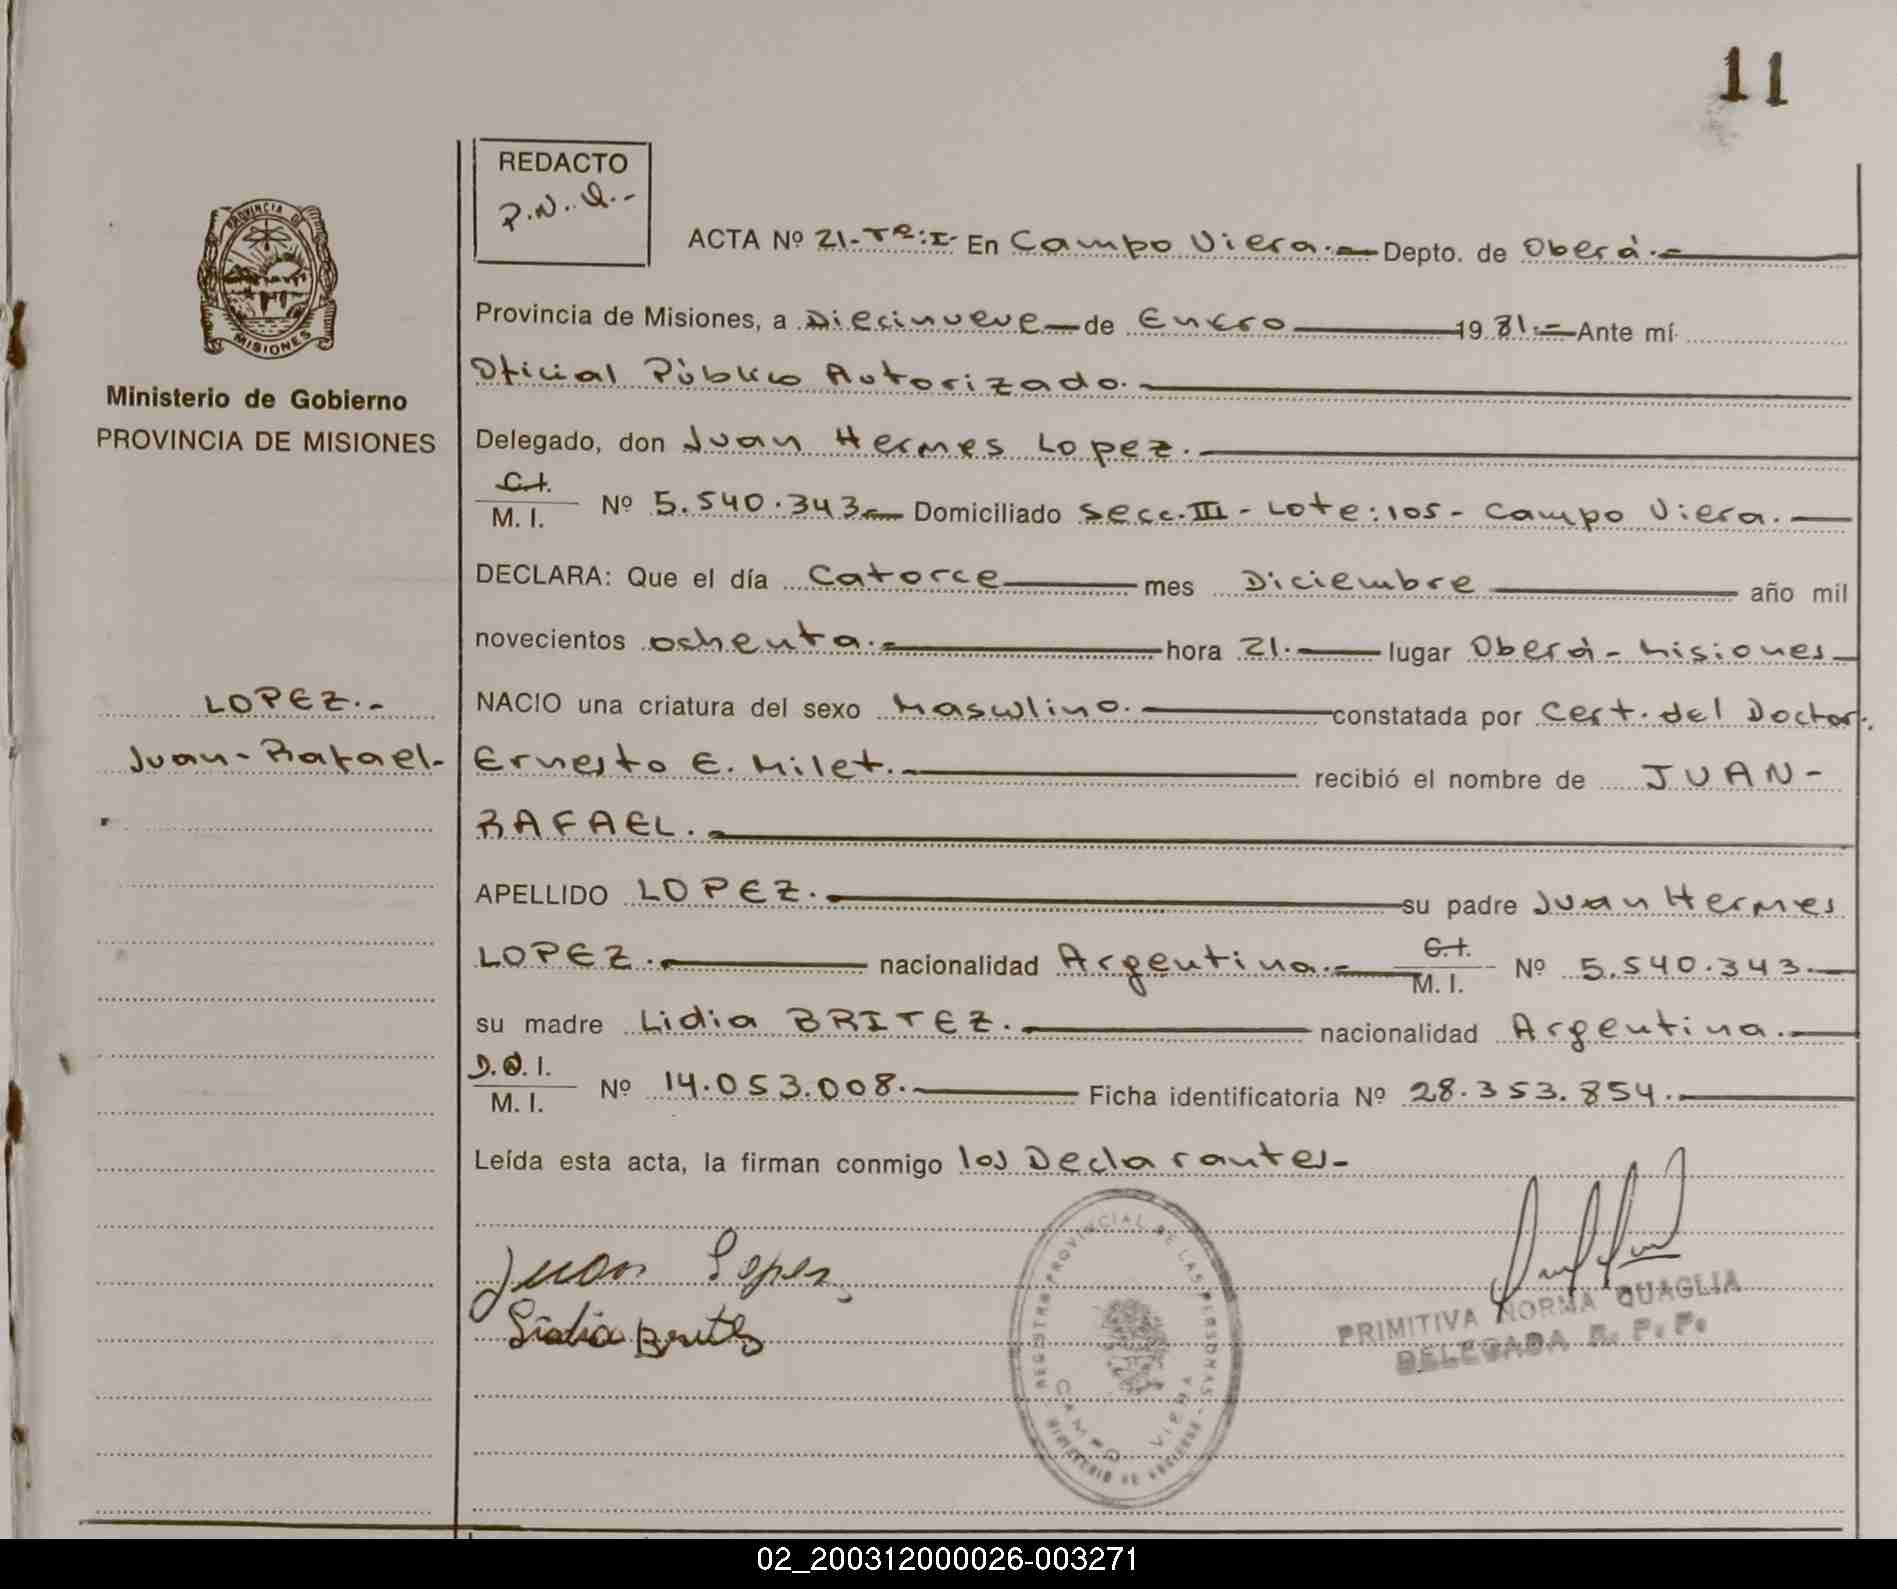 11
REDACTO
P.N.Q.-
PROVINCIA DE
MISIONES
Ministerio de Gobierno
PROVINCIA DE MISIONES
LOPEZ.-
Juan-Rafael-
ACTA Nº 21-Tº:I- En Campo Viera.- Depto. de Oberá.-
Provincia de Misiones, a Diecinueve de Enero 1981.- Ante mí
Oficial Público Autorizado.
Delegado, don Juan Hermes Lopez.
C.I. M. I. Nº 5.540.343 Domiciliado secc.III - Lote:105- Campo Viera.
DECLARA: Que el día Catorce mes Diciembre año mil
novecientos ochenta.- hora 21. lugar Oberá - Misiones
NACIO una criatura del sexo Masculino. constatada por Cert. del Doctor.
Ernesto E. Milet. recibió el nombre de JUAN-
RAFAEL.
APELLIDO LOPEZ. su padre Juan Hermes
LOPEZ. nacionalidad Argentina.- C.I. M. I. Nº 5.540.343.
su madre Lidia BRITEZ. nacionalidad Argentina.
D.N.I. M. I. Nº 14.053.008. Ficha identificatoria Nº 28.353.854.
Leída esta acta, la firman conmigo los Declarantes-
Juan Lopez
Lidia Britez
REGISTRO PROVINCIAL DE LAS PERSONAS
CAMPO VIERA
MINISTERIO DE GOBIERNO
PRIMITIVA NORMA QUAGLIA
DELEGADA R. P. P.
02_200312000026-003271